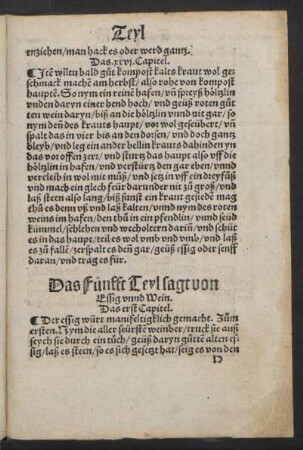 Teyl
enziehen/man hack es oder werd gantz.
Das.xxvj.Capitel.
¶Jtē wiltu bald gůt kompost kalts kraut wol ge
schmack machē am herbst/also rohe von kompost
hauptē. So nym ein reinē hafen/vñ spreyß höltzlin
vnden daryn einer hend hoch/vnd geüß roten gůt
ten wein daryn/biß an die höltzlin vnnd nit gar/so
nym den des krauts haupt/vor wol geseübert/vñ
spalt das in vier biß an den dorsen/vnd doch gantz
bleyb/vnd leg ein ander bellin krauts dahinden yn
das vor offen zerr/vnd sturtz das haupt also vff die
höltzlin im hafen/vnd verstürtz den gar eben/vnnd
vercleib in wol mit můß/vnd setz in vff ein dreyfüß
vnd mach ein glech feür darunder nit zů groß/vnd
laß steen also lang/biß sunst ein kraut gesiede mag
thů es denn vß vnd laß kalten/vnnd nym des roten
weins im hafen/den thů in ein pfendlin/vnnd seüd
kümmel/schlehen vnd wecholtern dariñ/vnd schüt
es in das haupt/teil es wol vmb vnd vmb/vnd laß
es zů fallē/zerspalt es deñ gar/geüß essig oder senff
daran/vnd trag es für.
Das Fünfft Teyl sagt von
Essig vnnd Wein.
Das erst Capitel.
¶Der essig würt manifeltigklich gemacht. Zům
ersten. Nym die aller seürste weinber/truck sie auß
seych sie durch ein tůch/geüß daryn gůttē alten es⸗
sig/laß es steen/so es sich gesetzt hat/seig es von den
D